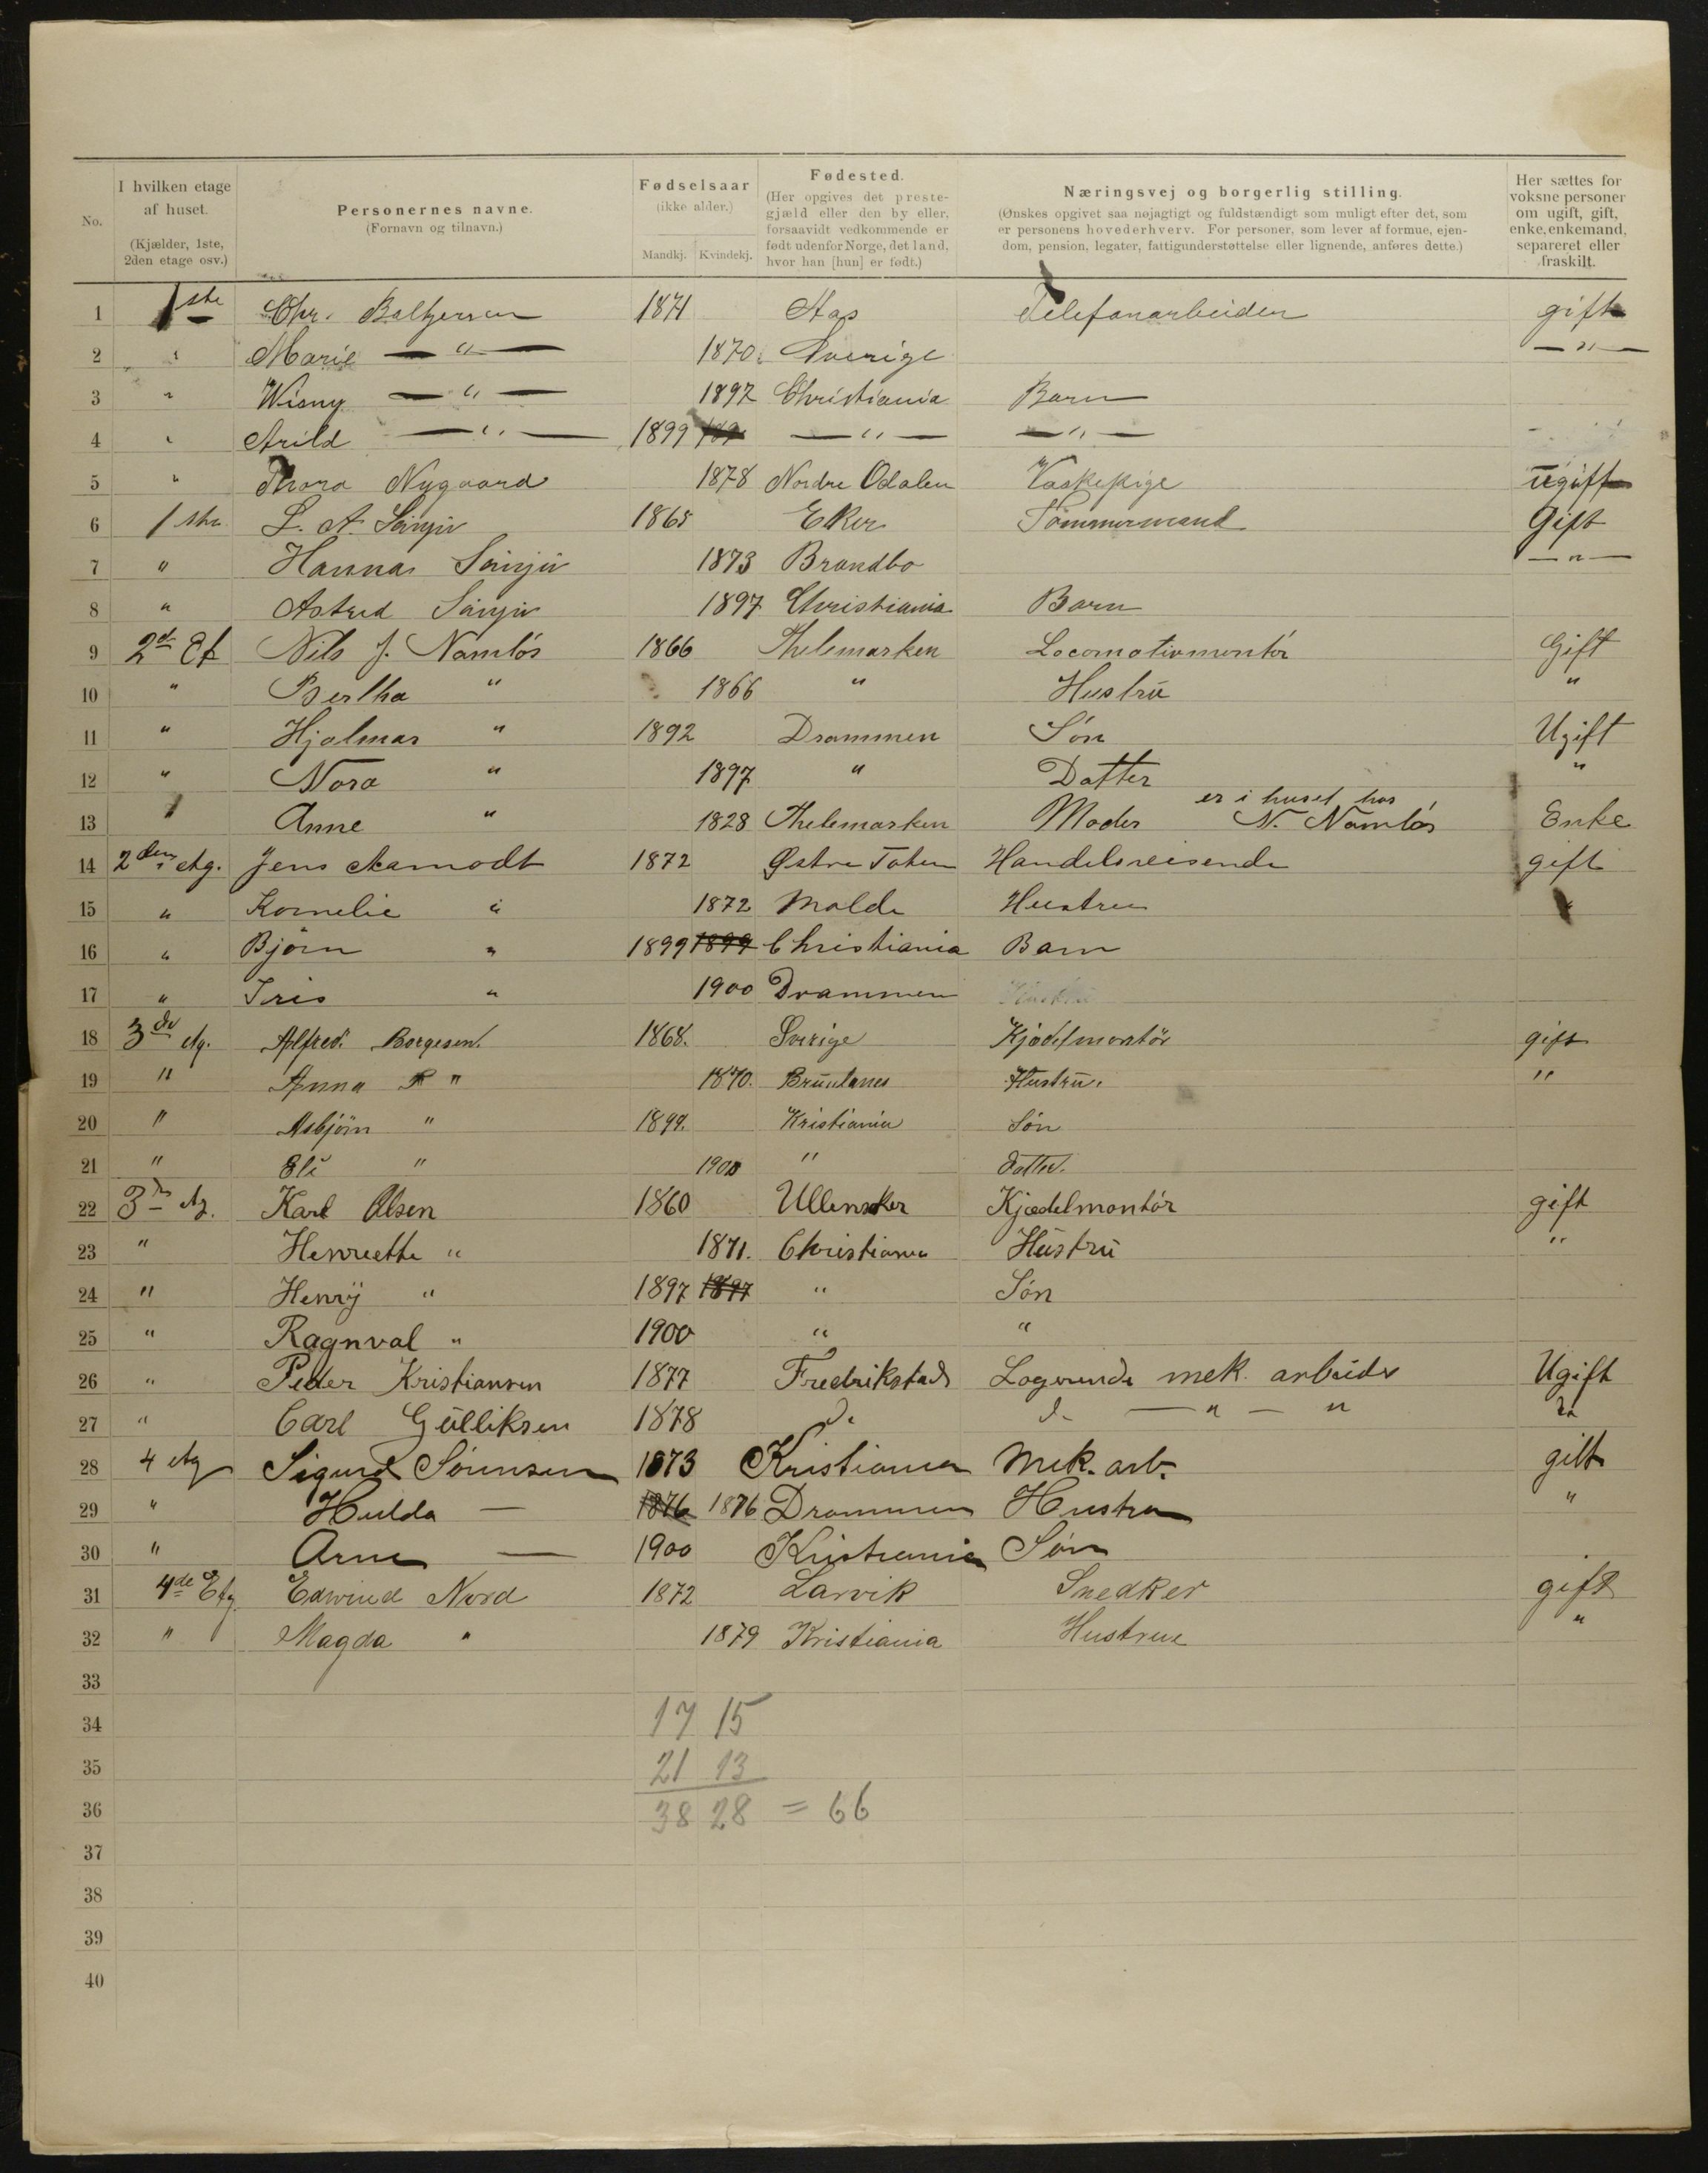 No. I hvilken etage af huset. (Kjælder, 1ste, 2den etage osv.) Personernes navne. (Fornavn og tilnavn.) Fødselsaar (ikke alder.) Mandkj. Kvindekj. Fødested. (Her opgives det prestegjæld eller den by eller, forsaavidt vedkommende er født udenfor Norge, det land, hvor han [hun] er født.) Næringsvej og borgerlig stilling. (Ønskes opgivet saa nøjagtigt og fuldstændigt som muligt efter det, som er personens hovederhverv. For personer, som lever af formue, ejendom, pension, legater, fattigunderstøttelse eller lignende, anføres dette.) Her sættes for voksne personer om ugift, gift, enke, enkemand, separeret eller fraskilt.
1 1ste Chr. Baltzersen 1871 Aas Telefonarbeider gift
2 " Marie — " — 1870. Sverige — " —
3 " Wisny — " — 1897 Christiania Barn
4 " Arild — " — 1899 — " — — " —
5 " Thora Nygaard 1878 Nordre Odalen Vaskepige ugift
6 1ste L. A. 1865 Eker Tømmermand Gift
7 " Hanna 1873 Brandbo — " —
8 " Astrid 1897 Christiania Barn
9 2d Et Nils J. Namlós 1866 Thelemarken Locomotivmontör Gift
10 " Bertha " 1866 " Hustru "
11 " Hjalmar " 1892 Drammen Són Ugift
12 " Nora " 1897 " Datter "
13 " Anne " 1828 Thelemarken Moder er i huset hos N. Namlós Enke
14 2den Etg. Jens Aamodt 1872 Østre Toten Handelsreisende gift
15 " Kornelie " 1872 Molde Hustru "
16 " Björn " 1899 1899 Christiania Barn
17 " Iris " 1900 Drammen
18 3de Etg. Alfred. Borgesen. 1868. Sverige Kjedelmontör gift
19 " Anna " 1870. Brunlanes Hustru. "
20 " Asbjörn " 1899. Kristiania Són
21 " Eli " 1900 " datter.
22 3de Etg. Karl Olsen 1860 Ullensaker Kjædelmontór gift
23 " Henriette " 1871. Christiania Hustru "
24 " Henry " 1897 1897 " Són
25 " Ragnval " 1900 " "
26 " Peder Kristiansen 1877 Fredrikstad Logerende mek. arbeider Ugift
27 " Carl Gulliksen 1878 do do — " — " do
28 4 Etg Sigurd Sörensen 1873 Kristiania Mek. arb. gift
29 " Hulda — 1876 1876 Drammen Hustru "
30 " Arne — 1900 Kristiania Són
31 4de Etg. Edwind Nord 1872 Larvik Snedker gift
32 " Magda " 1879 Kristiania Hustrue "
33
34 17 15
35 21 13
36 38 28 = 66
37
38
39
40